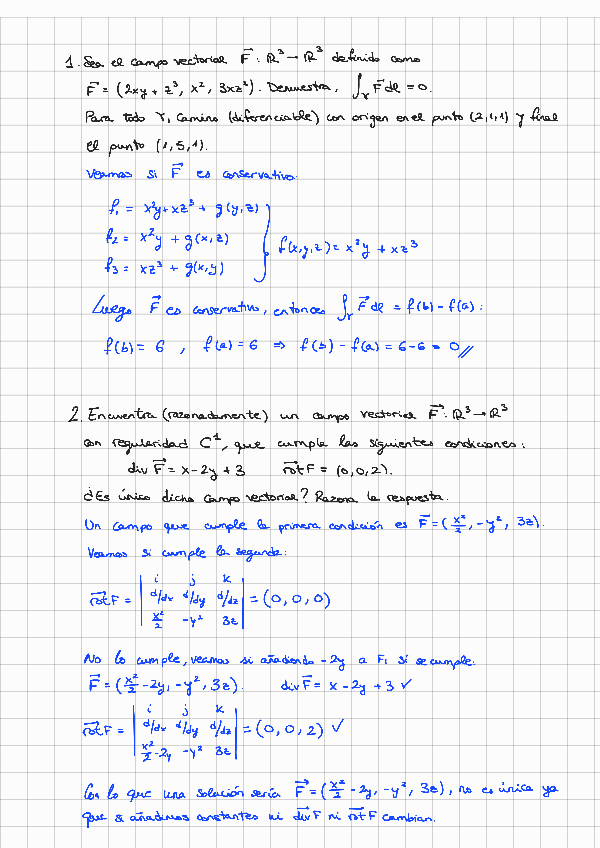 1. Sea el campo vectorial F⃗ : ℝ³ → ℝ³ definido como
F⃗ = (2xy + z³, x², 3xz²). Demuestra, ∫_γ F⃗ dl = 0.
Para todo γ, camino (diferenciable) con origen en el punto (2,1,1) y final
el punto (1,5,1).
Veamos si F⃗ es conservativo.
f₁ = x²y + xz³ + g(y,z)
f₂ = x²y + g(x,z)
f₃ = xz³ + g(x,y)
f(x,y,z) = x²y + xz³
Luego F⃗ es conservativo, entonces ∫_γ F⃗ dl = f(b) - f(a):
f(b) = 6 , f(a) = 6 ⇒ f(b) - f(a) = 6-6 = 0 //
2. Encuentra (razonadamente) un campo vectorial F⃗ : ℝ³ → ℝ³
con regularidad C¹, que cumpla las siguientes condiciones:
div F⃗ = x - 2y + 3 rot F = (0,0,2).
¿Es único dicho campo vectorial? Razona la respuesta.
Un campo que cumple la primera condición es F⃗ = (x²/2, -y², 3z).
Veamos si cumple la segunda:
rot F = | i j k
d/dx d/dy d/dz
x²/2 -y² 3z | = (0, 0, 0)
No lo cumple, veamos si añadiendo -2y a F₁ sí se cumple.
F⃗ = (x²/2 - 2y, -y², 3z). div F⃗ = x - 2y + 3 ✓
rot F = | i j k
d/dx d/dy d/dz
x²/2 - 2y -y² 3z | = (0, 0, 2) ✓
Con lo que una solución sería F⃗ = (x²/2 - 2y, -y², 3z), no es única ya
que si añadimos constantes ni div F ni rot F cambian.